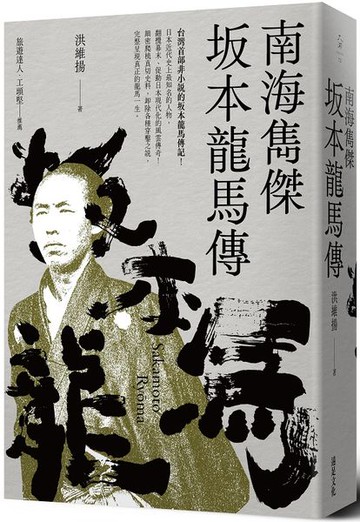 南海雋傑
坂本龍馬傳
洪維揚 著
台灣首部非小說的坂本龍馬傳記！
日本近代史上最知名的人物，
翻攪幕末、促動日本現代化的風雲傳奇！
細密爬梳真切史料，卸除各種穿鑿之說，
完整呈現真正的龍馬一生。
旅遊達人 工頭堅——推薦
坂本龍馬
Sakamoto
Ryoma
南海雋傑
坂本龍馬傳
洪維揚 著
遠足文化